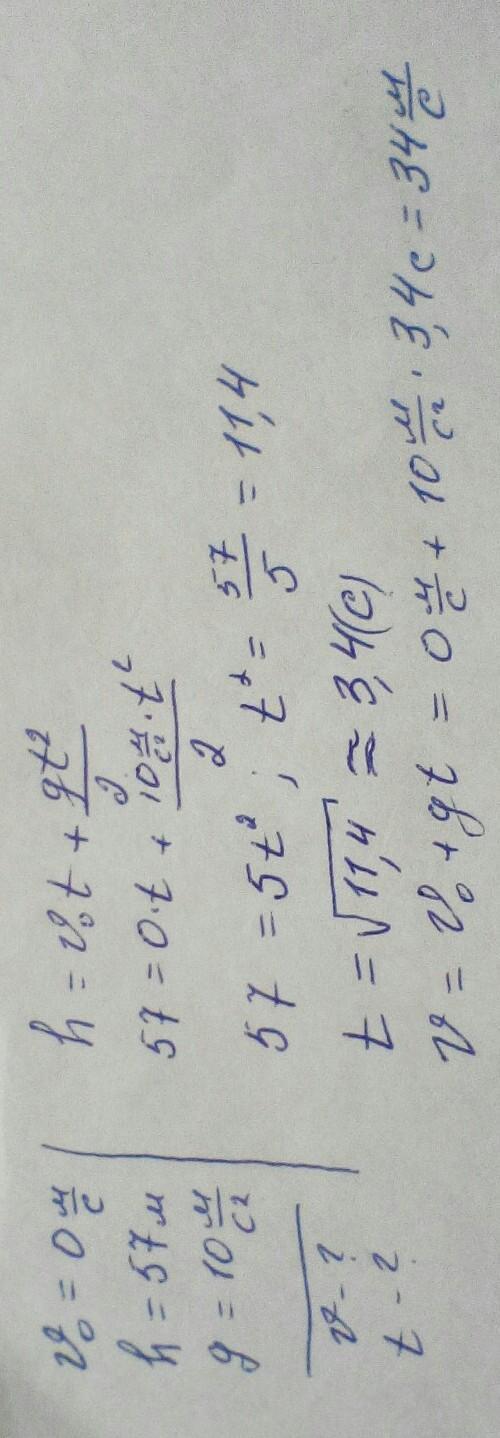 v₀ = 0 м/с
h = 57 м
g = 10 м/с²
v - ?
t - ?
h = v₀t + gt²/2
57 = 0·t + 10 м/с² · t²/2
57 = 5t² ; t² = 57/5 = 11,4
t = √11,4 ≈ 3,4(с)
v = v₀ + gt = 0 м/с + 10 м/с² · 3,4 с = 34 м/с